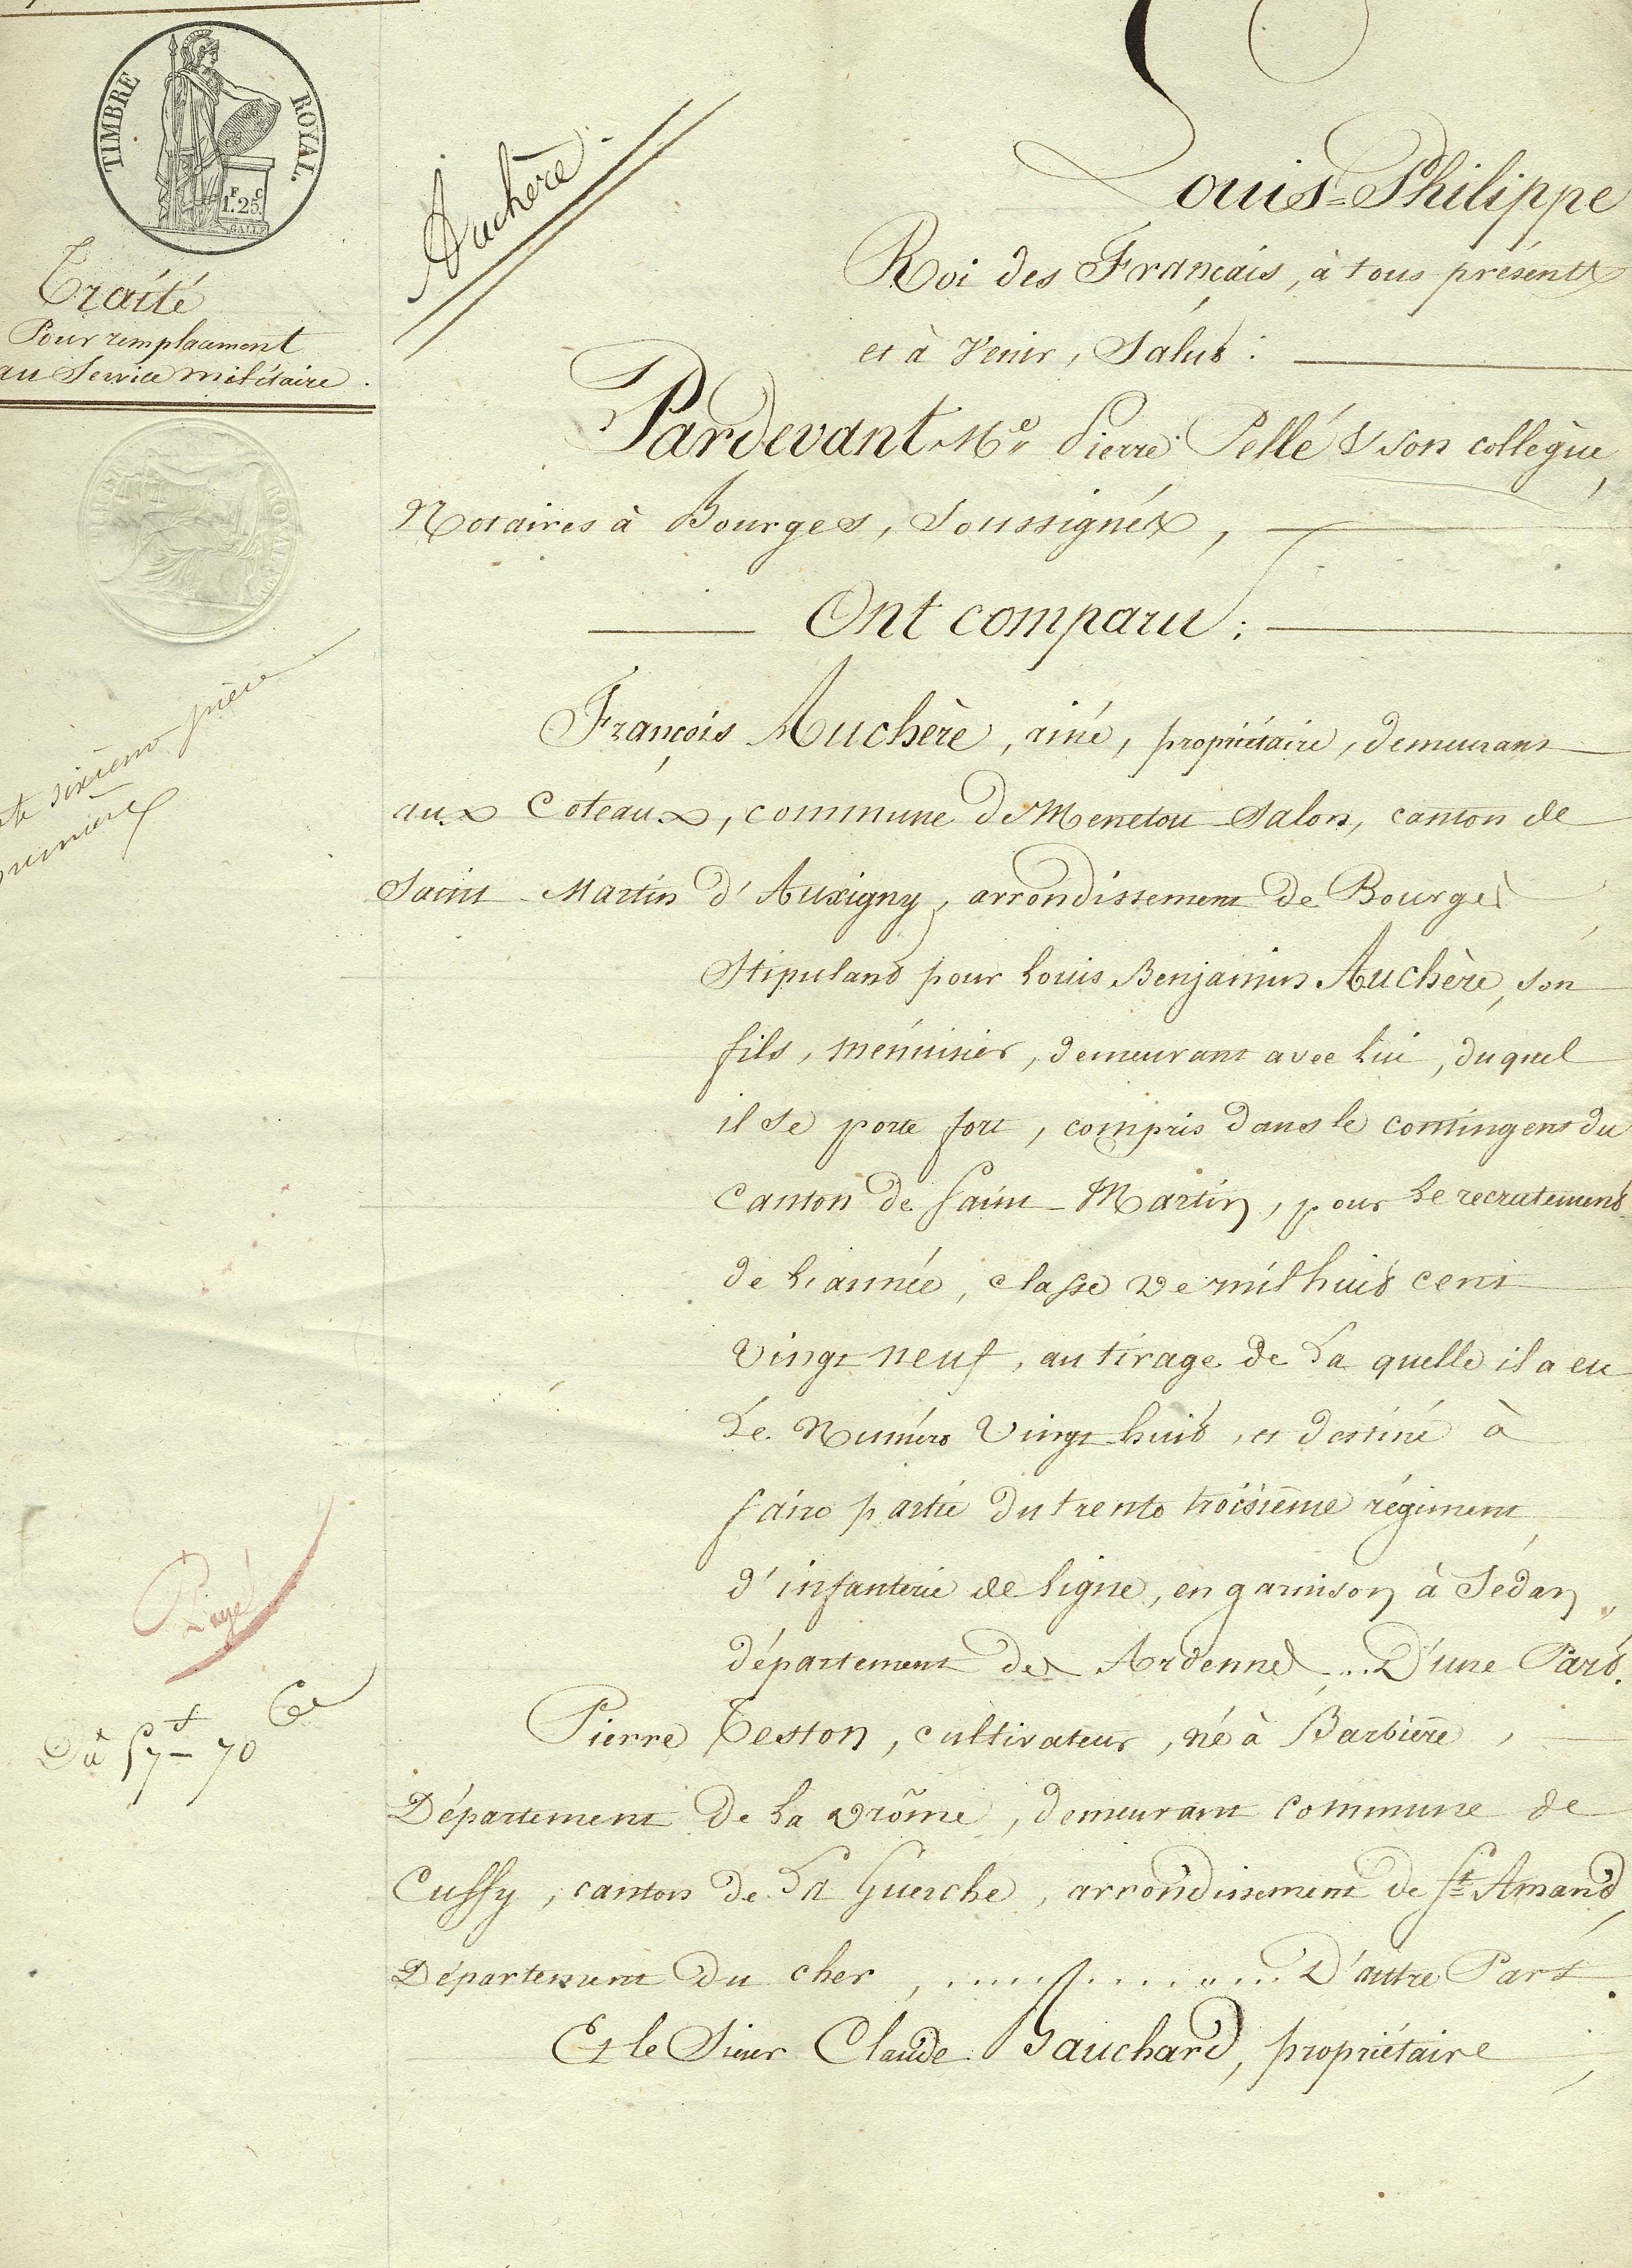 TIMBRE ROYAL.
F. C.
1.25.
Traité
Pour remplacement
au Service militaire.
Auchère
Louis-Philippe
Roi des Français, à tous présents
et à Venir, Salut :
Pardevant Me Pierre Pellé & son collègue,
Notaires à Bourges, Soussignés,
Ont comparu :
François Auchère, ainé, propriétaire, demeurant
aux Coteaux, commune de Menetou Salon, canton de
Saint Martin d'Auxigny, arrondissement de Bourges,
Stipulant pour Louis Benjamin Auchère, son
fils, ménuisier, demeurant avec lui, duquel
il se porte fort, compris dans le contingent du
Canton de Saint-Martin, pour le recrutement
de l'année, classe de mil huit cent
vingt neuf, au tirage de la quelle il a eu
Le Numéro Vingt huit, et destiné à
faire partie du trente troisième régiment
d'infanterie de ligne, en garnison à Sédan,
département des Ardennes ... D'une Part.
Pierre Teston, cultivateur, né à Barbière,
Département de la Drôme, demeurant commune de
Cuffy, canton de La Guerche, arrondissement de St Amand,
Département du cher, ........... D'autre Part.
Et le Sieur Claude Bauchard, propriétaire
sixième pièce
première
Payé
Dû 57 f 70 Ce